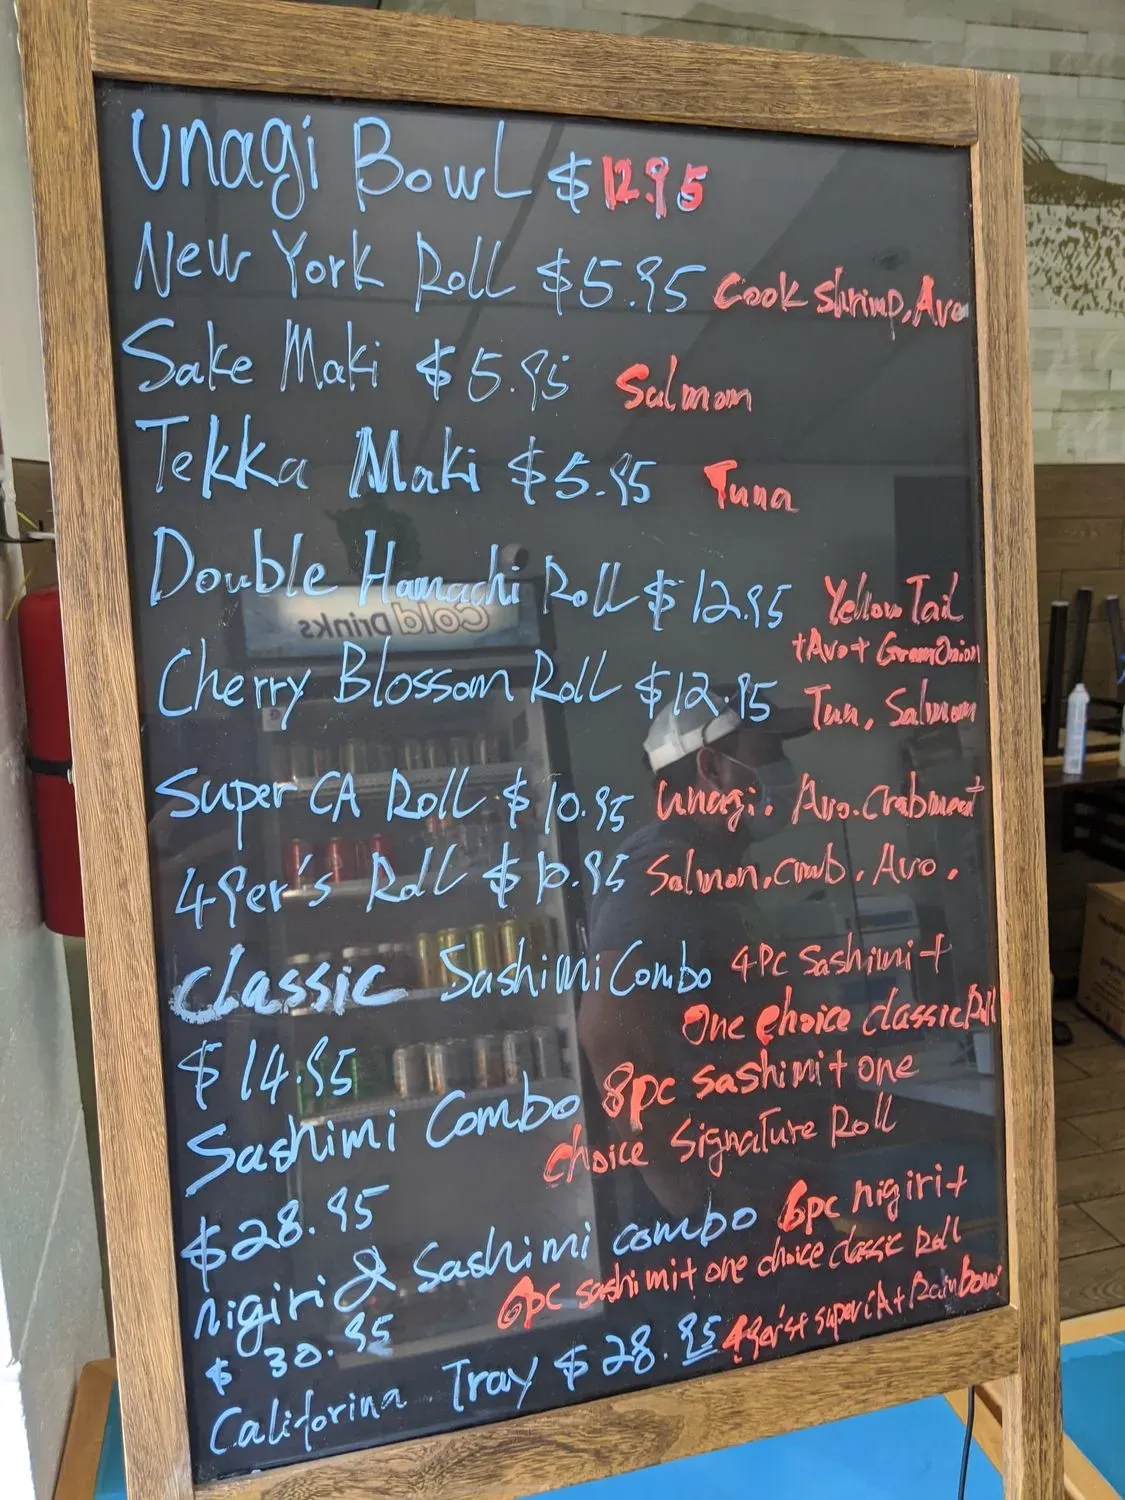 unagi Bowl $12.95
New York Roll $5.95 Cook shrimp, Avo
Sake Maki $5.95 Salmon
Tekka Maki $5.95 Tuna
Double Hamachi Roll $12.95 Yellow Tail
+Avo+ Green Onion
Cherry Blossom Roll $12.95 Tun, Salmon
Super CA Roll $10.95 unagi. Avo. Crabmeat
49er's Roll $10.95 Salmon, crab, Avo.
classic Sashimi Combo 4pc Sashimi +
One choice classic Roll
$14.95
8pc sashimi + one
Sashimi Combo
choice Signature Roll
$28.95
nigiri & Sashimi combo 6pc nigiri +
6pc sashimi + one choice classic Roll
$30.95
Califorina Tray $28.95 49er's + super CA + Rainbow
Cold Drinks